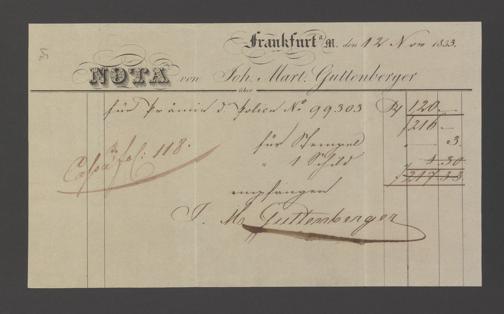 Frankfurt a/M. den 12 Nov 1853.
NOTA von Joh. Mart. Guttenberger
über
für Prämie d. Police No. 99303 120.—
f 216.—
für Stempel 3.
" 1 Schild 1.30
f 217.33
Cassa fol: 118.
empfangen
J. M. Guttenberger